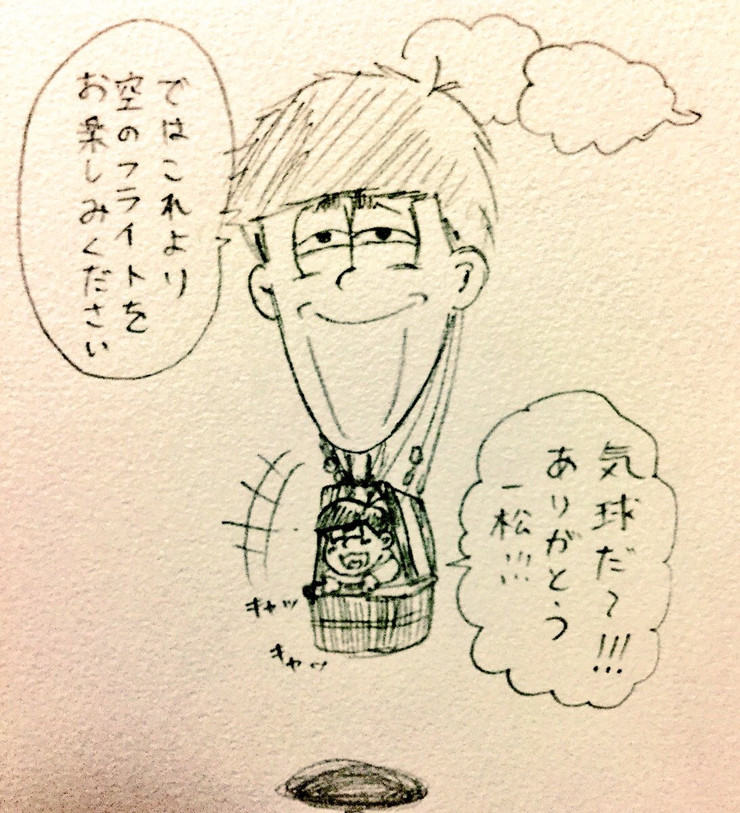 ではこれより
空のフライトを
お楽しみください
気球だ～!!!
ありがとう
一松!!!
キャッ
キャッ